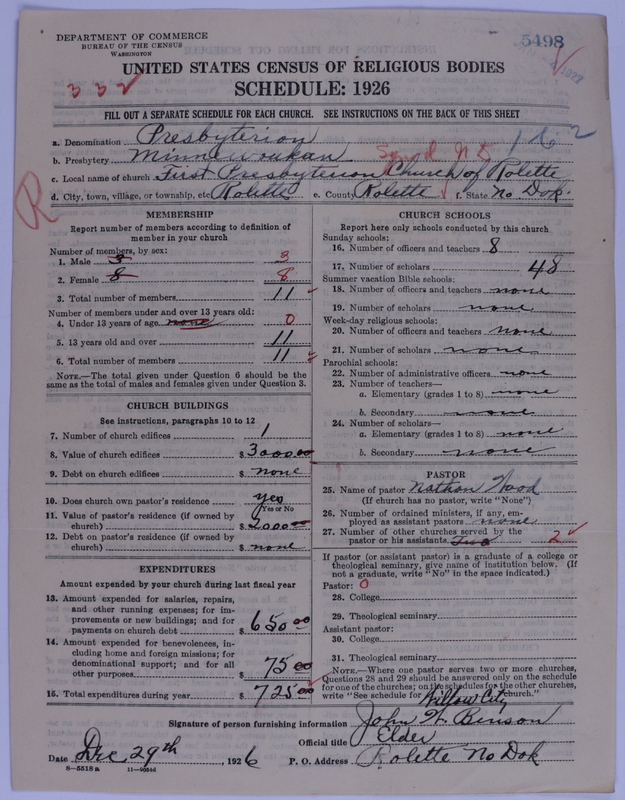 DEPARTMENT OF COMMERCE
BUREAU OF THE CENSUS
WASHINGTON
5498
UNITED STATES CENSUS OF RELIGIOUS BODIES
332
SCHEDULE: 1926
FILL OUT A SEPARATE SCHEDULE FOR EACH CHURCH. SEE INSTRUCTIONS ON THE BACK OF THIS SHEET
a. Denomination Presbyterian
b. Presbytery Minnewaukan
c. Local name of church First Presbyterian Church of Rolette
d. City, town, village, or township, etc Rolette e. County Rolette f. State No Dak.
R
MEMBERSHIP
Report number of members according to definition of member in your church
Number of members, by sex:
1. Male 3 3
2. Female 8 8
3. Total number of members 11
Number of members under and over 13 years old:
4. Under 13 years of age none 0
5. 13 years old and over 11
6. Total number of members 11
NOTE.—The total given under Question 6 should be the same as the total of males and females given under Question 3.
CHURCH BUILDINGS
See instructions, paragraphs 10 to 12
7. Number of church edifices 1
8. Value of church edifices $ 3000.00
9. Debt on church edifices $ none
10. Does church own pastor's residence yes
(Yes or No)
11. Value of pastor's residence (if owned by church) $ 2000.00
12. Debt on pastor's residence (if owned by church) $ none
EXPENDITURES
Amount expended by your church during last fiscal year
13. Amount expended for salaries, repairs, and other running expenses; for improvements or new buildings; and for payments on church debt $ 650.00
14. Amount expended for benevolences, including home and foreign missions; for denominational support; and for all other purposes $ 75.00
15. Total expenditures during year $ 725.00
CHURCH SCHOOLS
Report here only schools conducted by this church
Sunday schools:
16. Number of officers and teachers 8
17. Number of scholars 48
Summer vacation Bible schools:
18. Number of officers and teachers none
19. Number of scholars none
Week-day religious schools:
20. Number of officers and teachers none
21. Number of scholars none
Parochial schools:
22. Number of administrative officers none
23. Number of teachers—
a. Elementary (grades 1 to 8) none
b. Secondary none
24. Number of scholars—
a. Elementary (grades 1 to 8) none
b. Secondary none
PASTOR
25. Name of pastor Nathan Wood
(If church has no pastor, write "None")
26. Number of ordained ministers, if any, employed as assistant pastors none
27. Number of other churches served by the pastor or his assistants Two 2
If pastor (or assistant pastor) is a graduate of a college or theological seminary, give name of institution below. (If not a graduate, write "No" in the space indicated.)
Pastor: 0
28. College
29. Theological seminary
Assistant pastor:
30. College
31. Theological seminary
NOTE.—Where one pastor serves two or more churches, Questions 28 and 29 should be answered only on the schedule for one of the churches; on the schedules for the other churches, write "See schedule for Willow City church."
Signature of person furnishing information John W. Benson
Official title Elder
Date Dec 29th, 1926 P. O. Address Rolette No Dak
8—5518 a